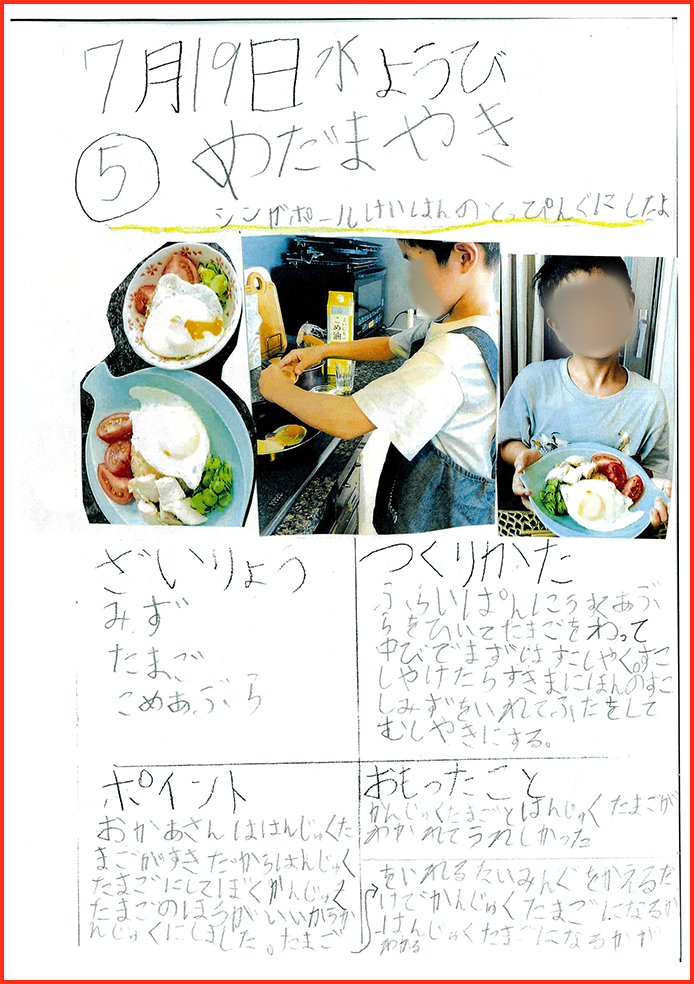 7月19日水ようび
⑤ めだまやき
シンガポールけいはんのとっぴんぐにしたよ
こめ油
ざいりょう
みず
たまご
こめあぶら
つくりかた
ふらいぱんにうすくあぶ
らをひいてたまごをわって
中びでまずはすこしやく。すこ
しやけたらすきまにほんのすこ
しみずをいれてふたをして
むしやきにする。
ポイント
おかあさんははんじゅくた
まごがすきだからはんじゅく
たまごにしてぼくがんじゅく
たまごのほうがいいからか
んじゅくにしました。たまご
をいれるたいみんぐをかえるだ
けでかんじゅくたまごになるか
はんじゅくたまごになるかが
わかる
おもったこと
かんじゅくたまごとはんじゅくたまごが
わかれてうれしかった